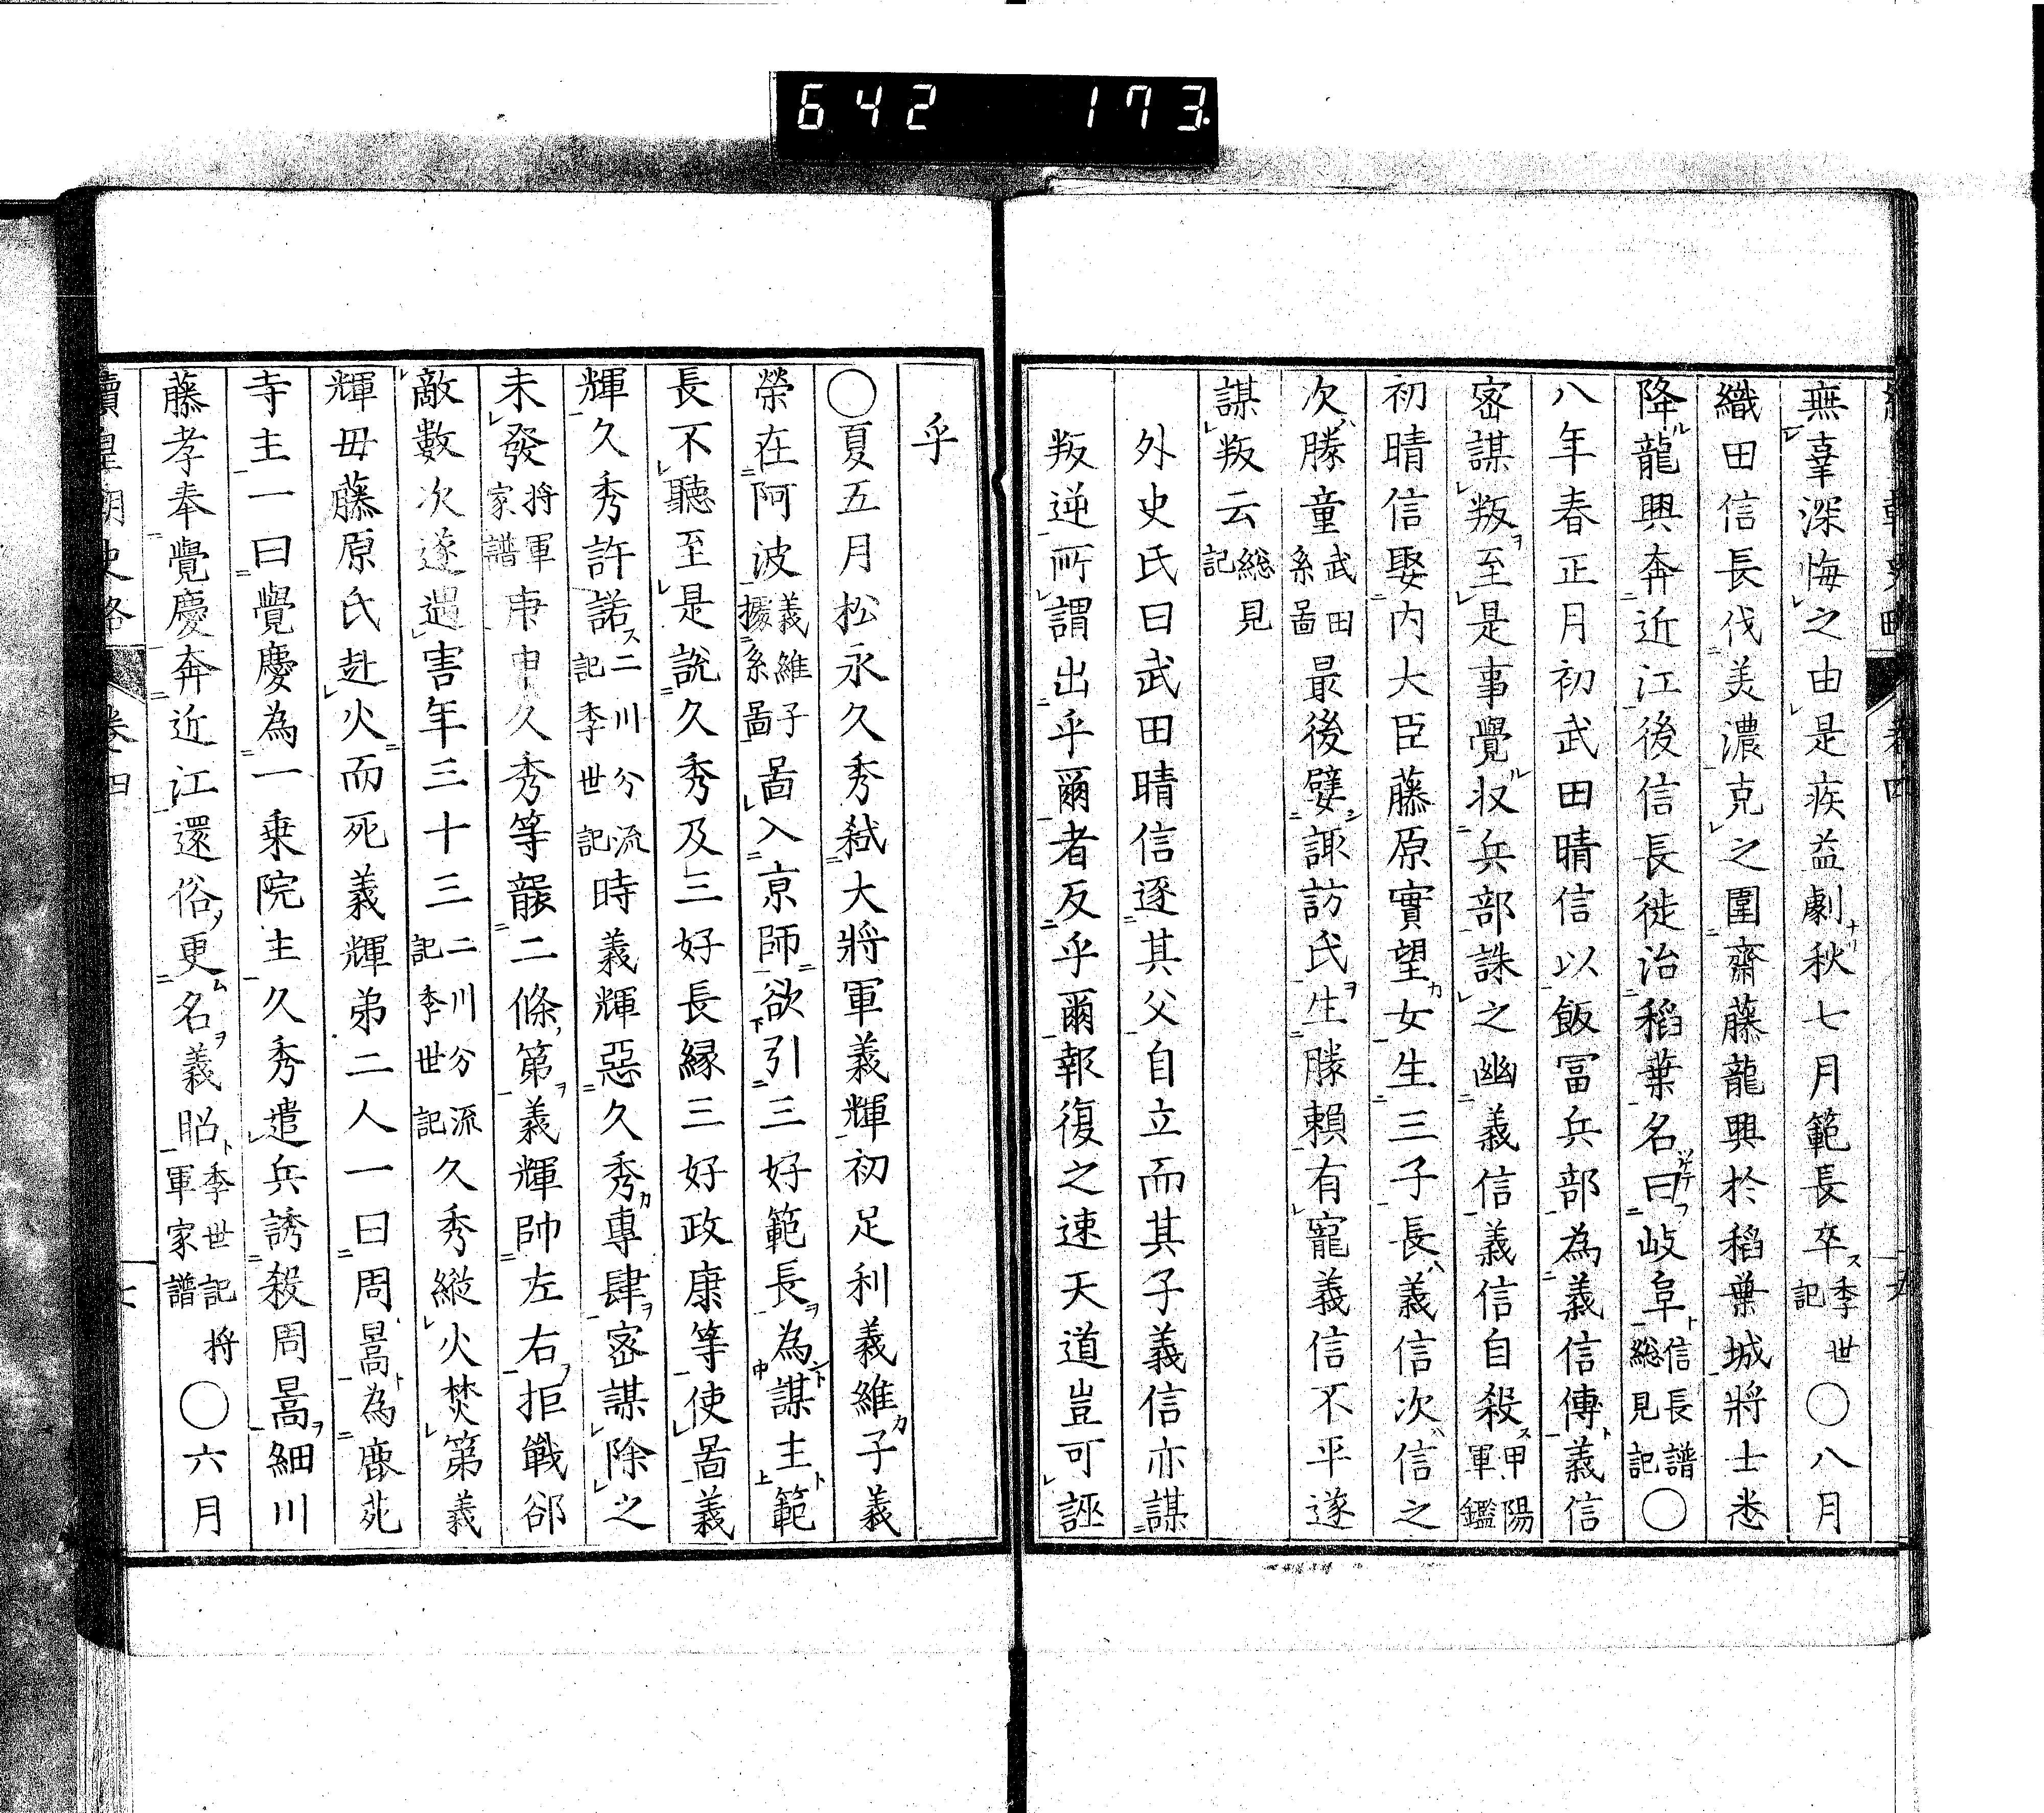 642 173
無辜深悔之由是疾益劇秋七月範長卒季世記〇八月
織田信長伐美濃克之圍齋藤龍興於稻葉城將士悉
降龍興奔近江後信長徙治稻葉名曰岐阜信長譜総見記〇
八年春正月初武田晴信以飯冨兵部為義信傅義信
密謀叛至是事覺収兵部誅之幽義信義信自殺甲陽軍鑑
初晴信娶内大臣藤原實望女生三子長義信次信之
次勝童武田系啚最後嬖諏訪氏生勝賴有寵義信不平遂
謀叛云総見記
外史氏曰武田晴信逐其父自立而其子義信亦謀
叛逆所謂出乎爾者反乎爾報復之速天道豈可誣
乎
〇夏五月松永久秀弑大將軍義輝初足利義維子義
榮在阿波義維子據系啚啚入京師欲引三好範長為謀主範
長不聽至是說久秀及三好長緣三好政康等使啚義
輝久秀許諾二川分流記季世記時義輝惡久秀專肆密謀除之
未發将軍家譜庚申久秀等襲二條第義輝帥左右拒戰郤
敵數次遂遇害年三十三二川分流記季世記久秀縱火焚第義
輝母藤原氏赴火而死義輝弟二人一曰周暠為鹿苑
寺主一曰覺慶為一乗院主久秀遣兵誘殺周暠細川
藤孝奉覺慶奔近江還俗更名義昭季世記将軍家譜〇六月
續皇朝史略 卷四